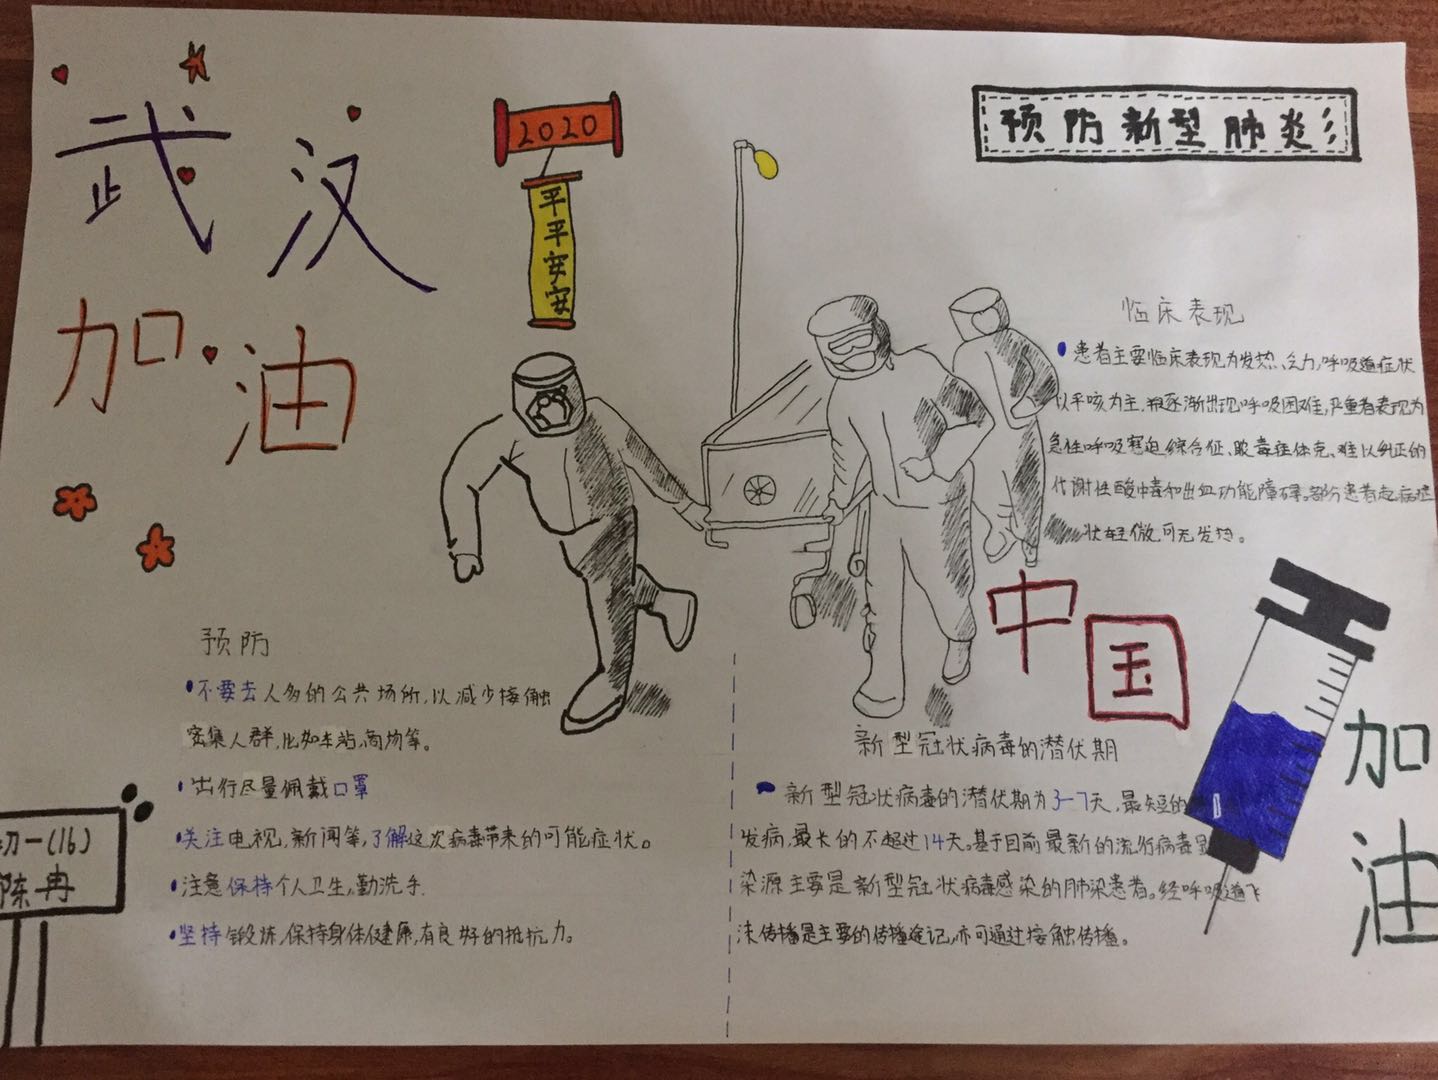 武汉
加油
2020
平平安安
预防新型肺炎
临床表现
患者主要临床表现为发热、乏力,呼吸道症状
以干咳为主,并逐渐出现呼吸困难,严重者表现为
急性呼吸窘迫综合征、脓毒症休克、难以纠正的
代谢性酸中毒和出血功能障碍。部分患者起病症
状轻微,可无发热。
中国
加油
预防
不要去人多的公共场所,以减少接触
密集人群,比如车站,商场等。
出行尽量佩戴口罩
关注电视,新闻等,了解这次病毒带来的可能症状。
注意保持个人卫生,勤洗手.
坚持锻炼,保持身体健康,有良好的抵抗力。
新型冠状病毒的潜伏期
新型冠状病毒的潜伏期为3-7天,最短的
发病,最长的不超过14天。基于目前最新的流行病毒
染源主要是新型冠状病毒感染的肺染患者。经呼吸道飞
沫传播是主要的传播途记,亦可通过接触传播。
初一(16)
陈冉